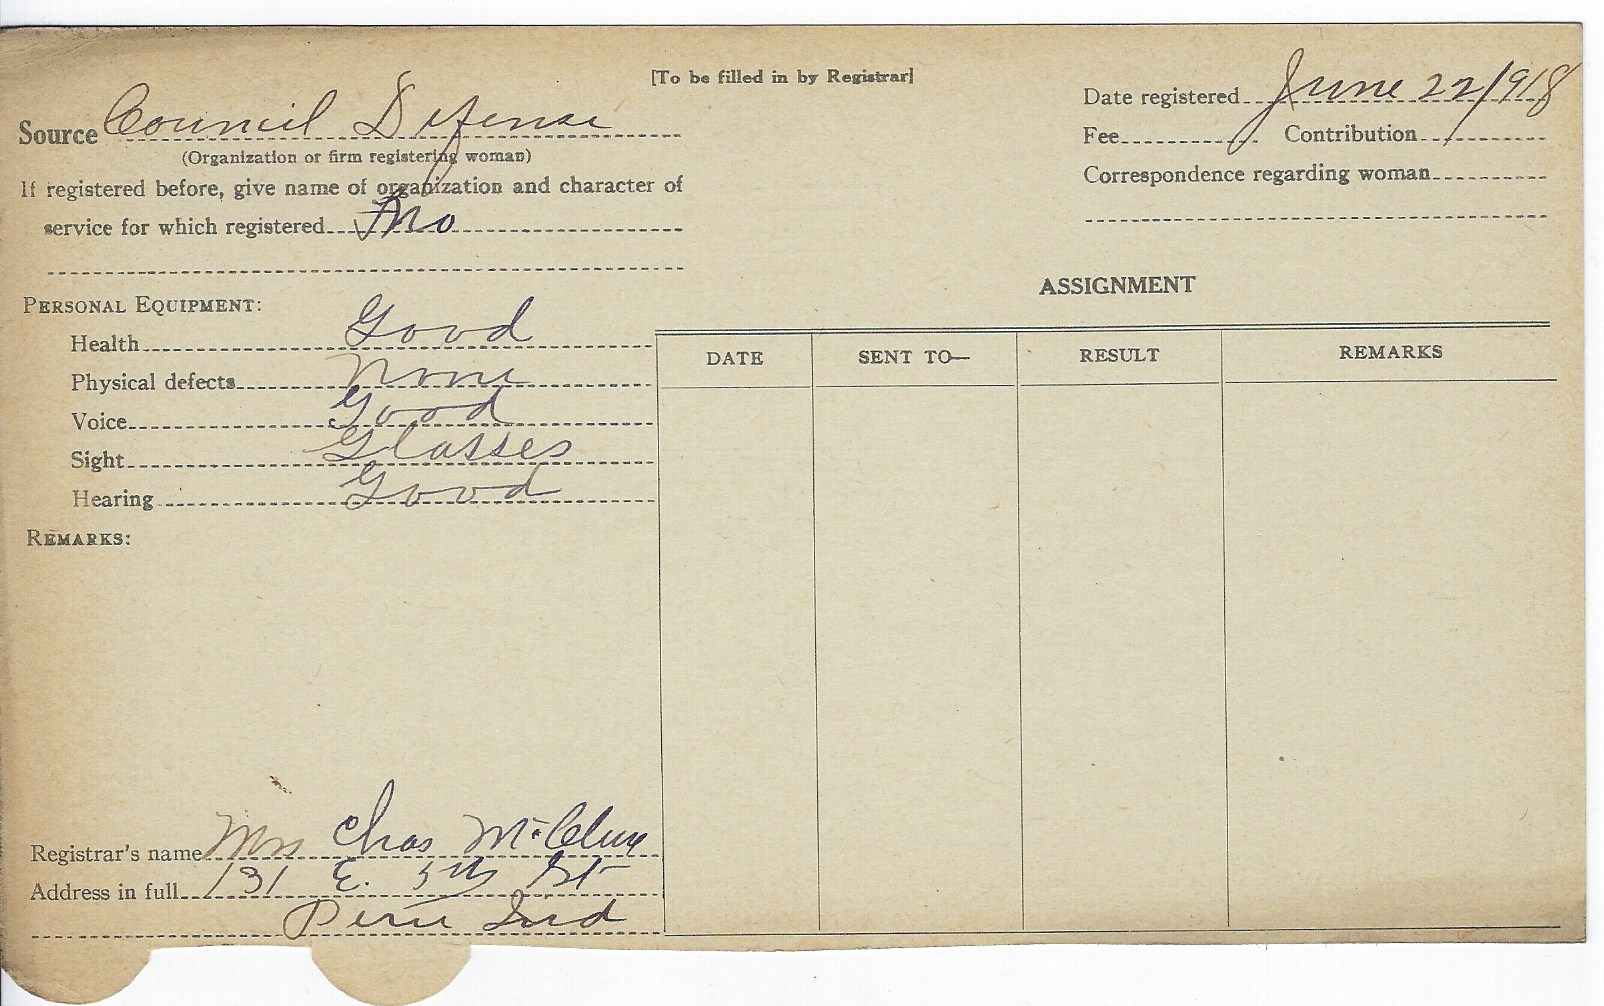 [To be filled in by Registrar]
Source Council Defense
(Organization or firm registering woman)
If registered before, give name of organization and character of
service for which registered No
Date registered June 22/918
Fee Contribution
Correspondence regarding woman
PERSONAL EQUIPMENT:
Health Good
Physical defects None
Voice Good
Sight Glasses
Hearing Good
REMARKS:
ASSIGNMENT
DATE SENT TO— RESULT REMARKS
Registrar's name Mrs Chas McClure
Address in full 131 E. 5th St
Peru Ind